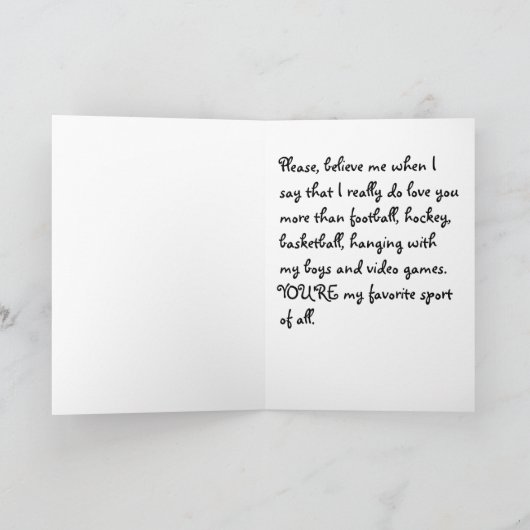 Please, believe me when I
say that I really do love you
more than football, hockey,
basketball, hanging with
my boys and video games.
YOU'RE my favorite sport
of all.